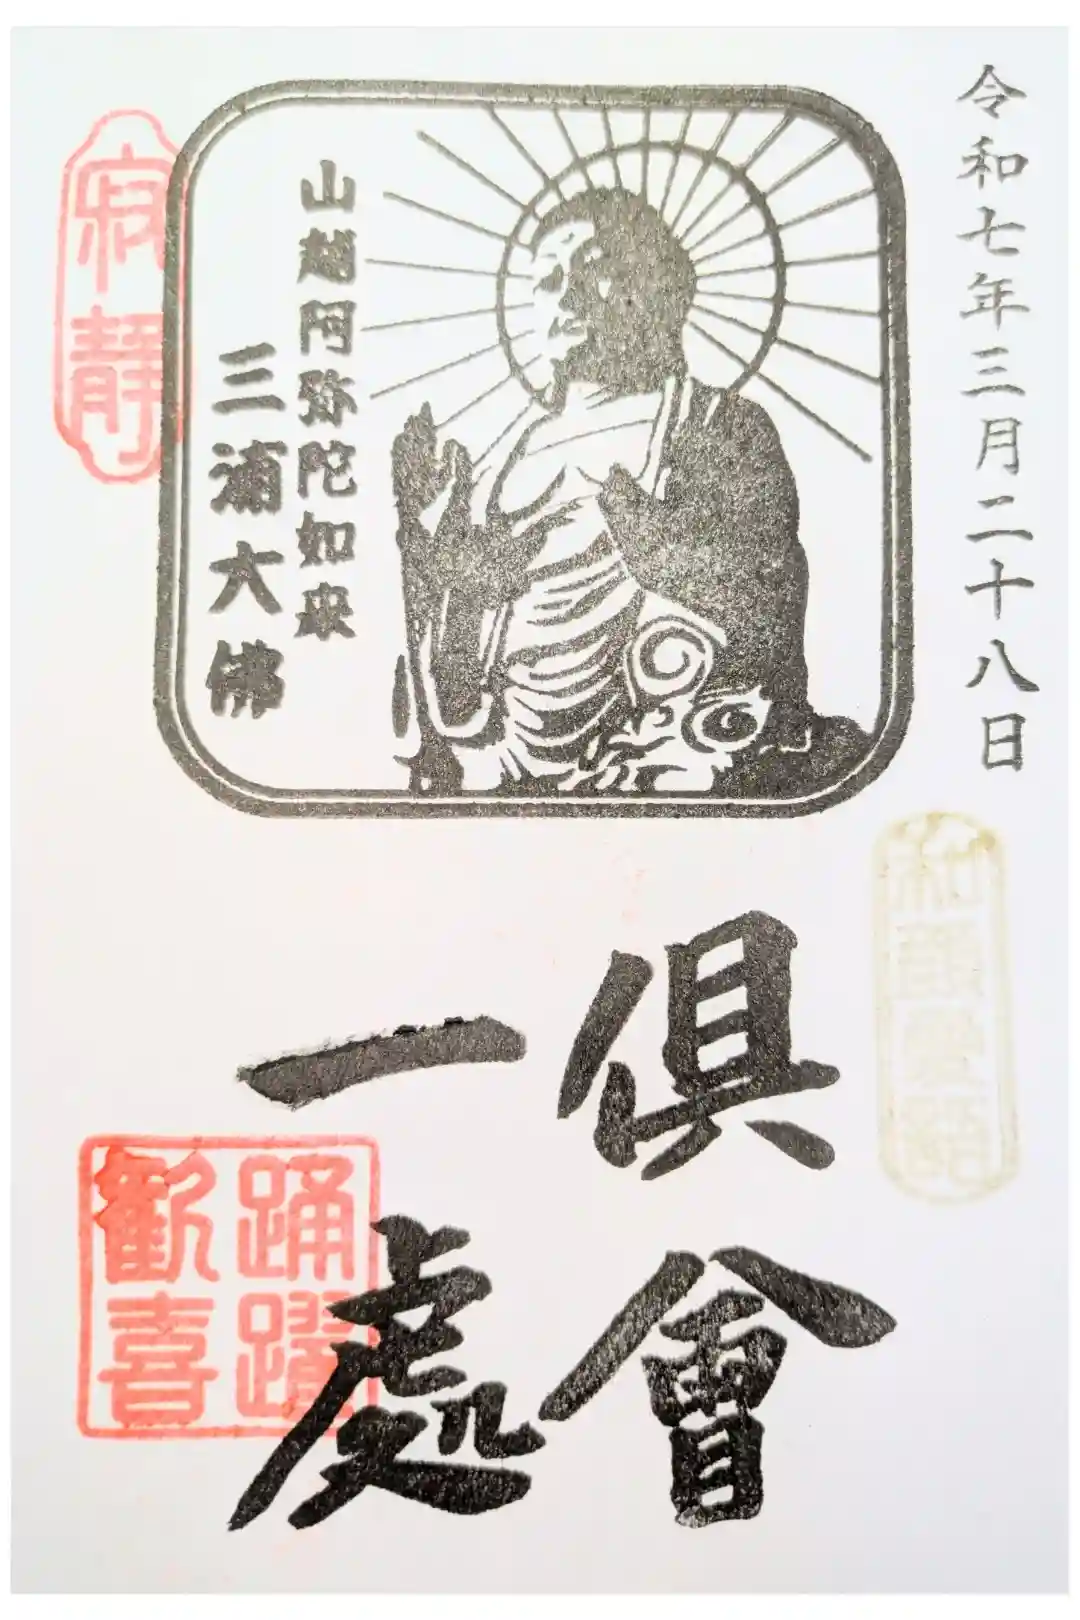 令和七年三月二十八日
山越阿弥陀如来
三浦大佛
寂静
和顔愛語
倶會
一處
踊躍
歓喜